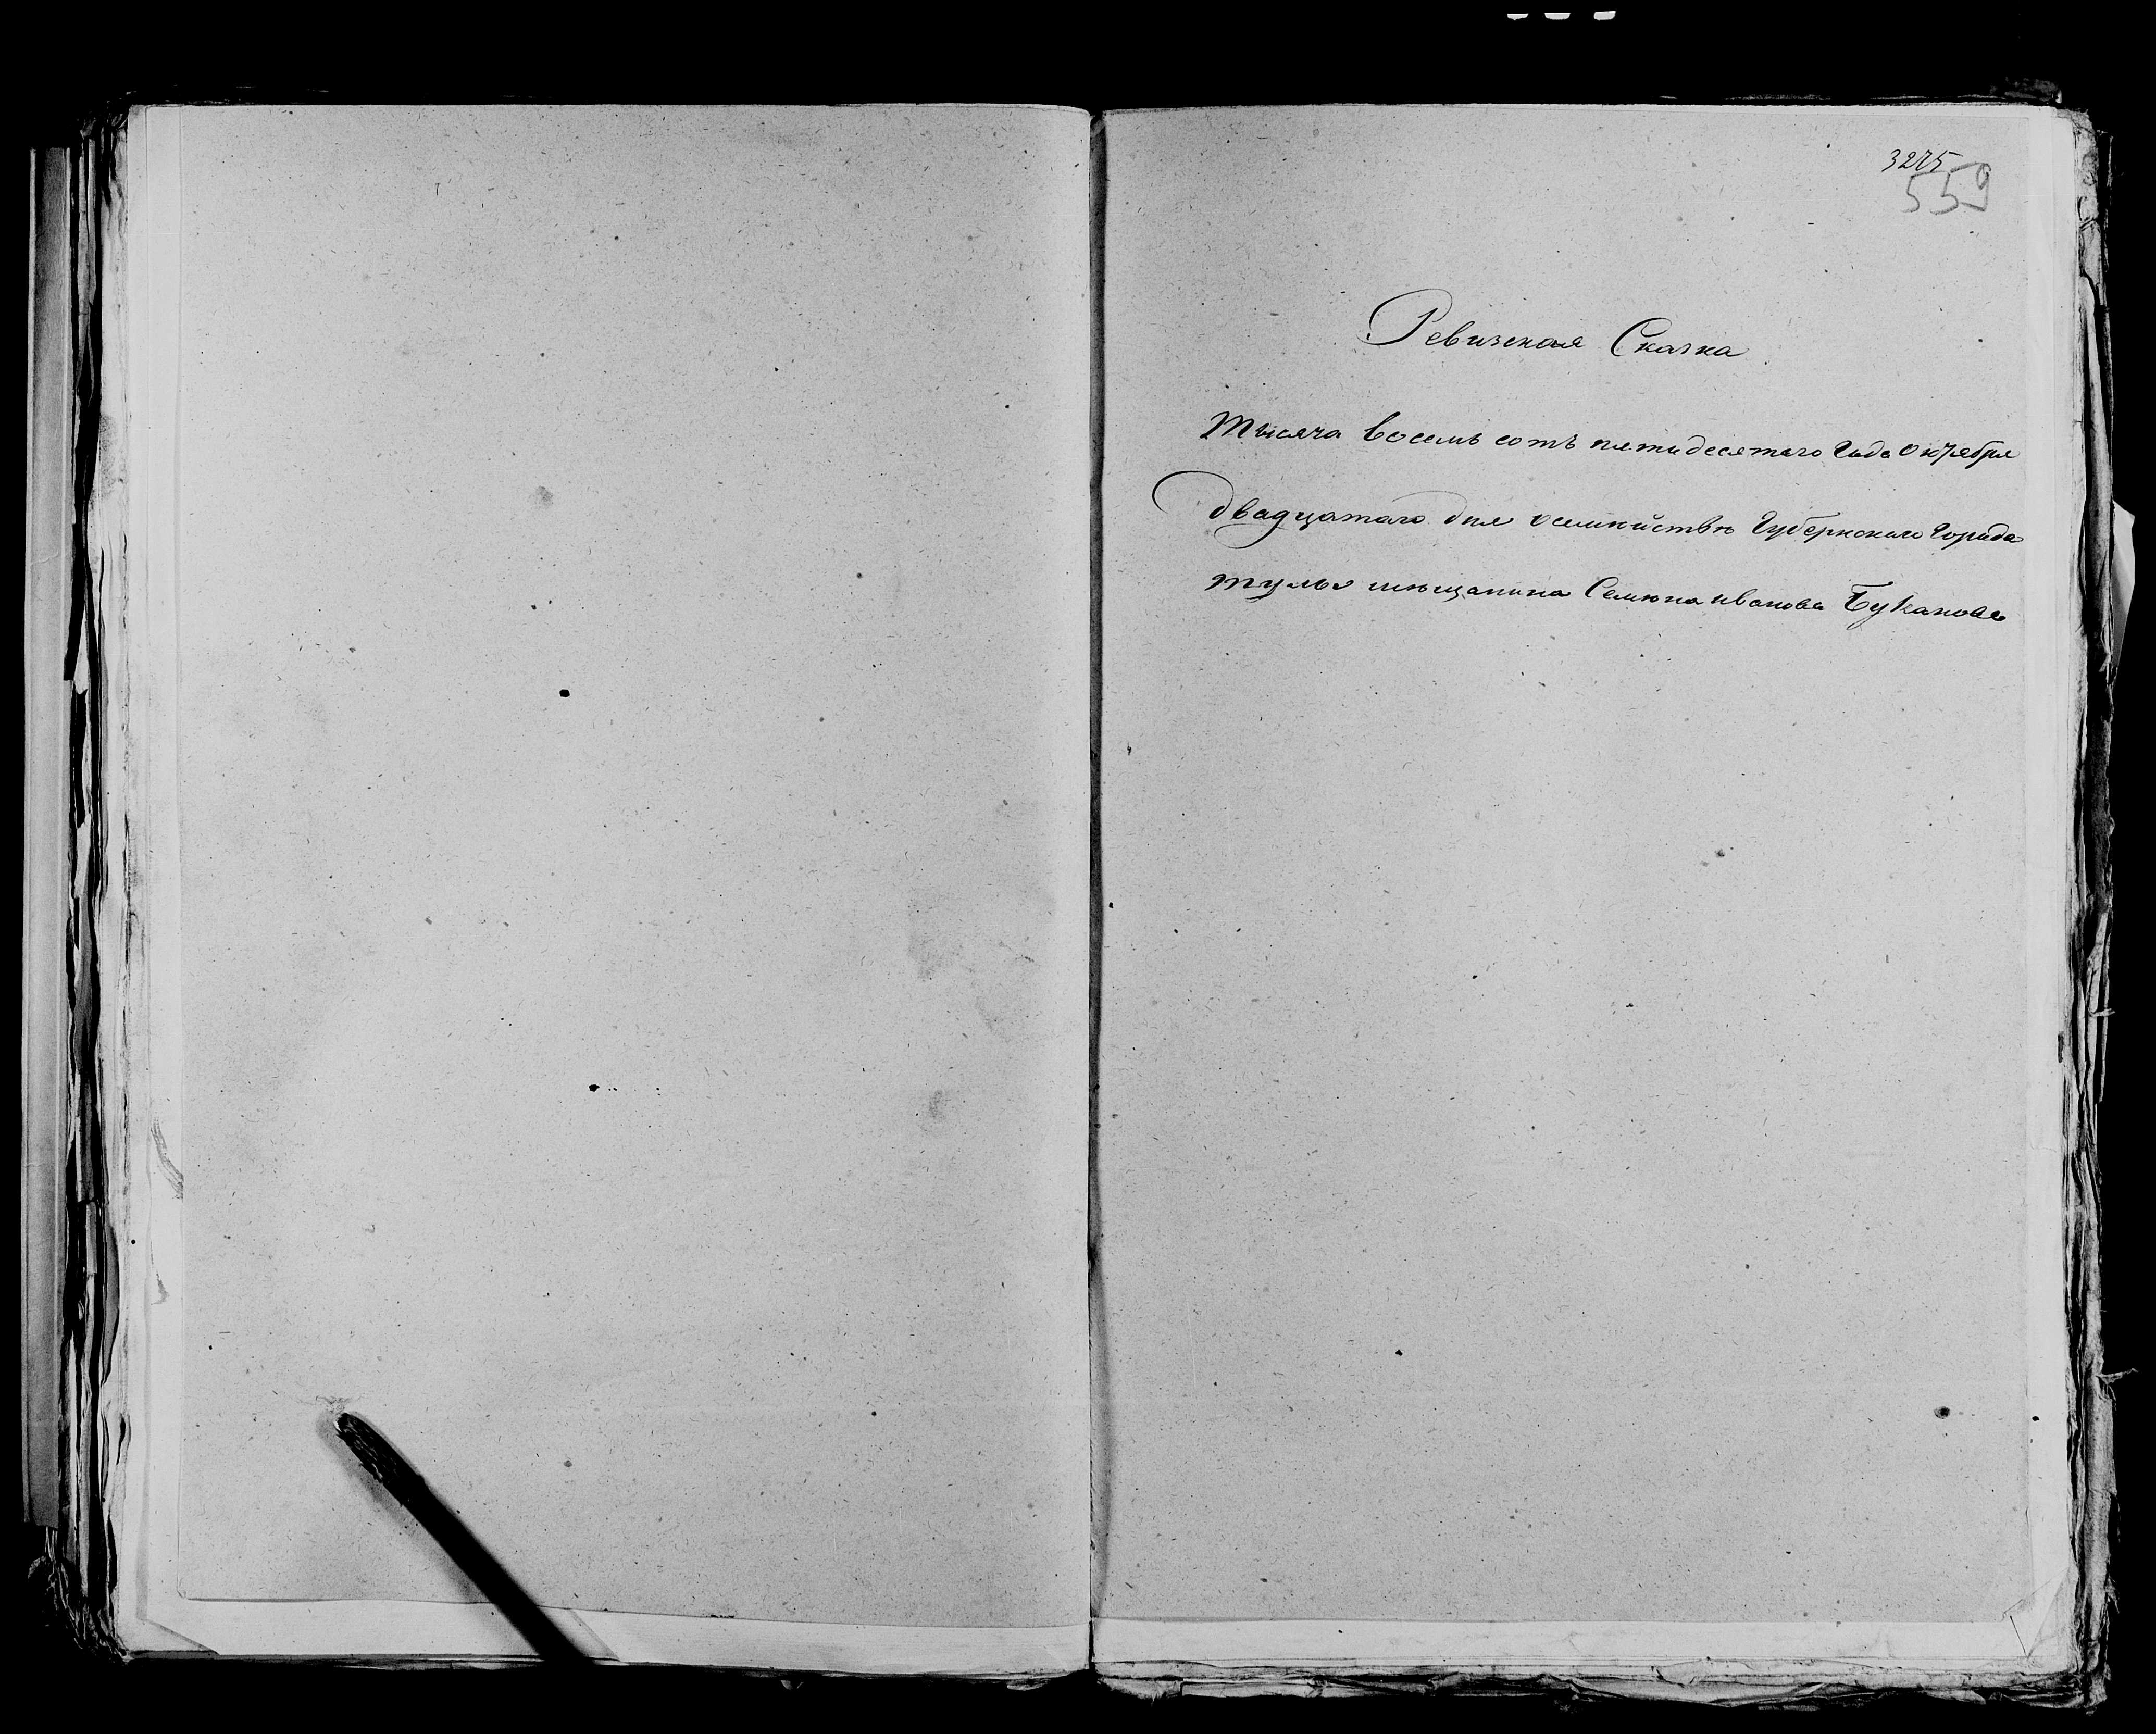 3275
559
Ревизская Сказка
Тысяча восемь сотъ пятидесятаго Года Октября
двадцатаго дня о семействѣ Губернскаго Города
тулы мѣщанина Семиона иванова Буканова